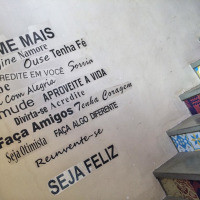 ME MAIS
Namore
Ouse Tenha Fé
ACREDITE EM VOCÊ Sorria
Com Alegria APROVEITE A VIDA
mude Divirta-se Acredite Tenha Coragem
Faça Amigos FAÇA ALGO DIFERENTE
Seja Otimista
Reinvente-se
SEJA FELIZ